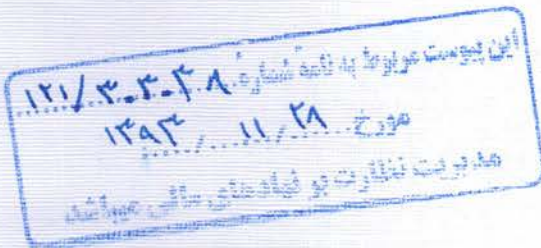 این پیوست مربوط به نامه شماره ۱۲۱/۳۰۳۰۴۰۸
مورخ ۱۳۹۳/۱۱/۲۸
مدیریت نظارت بر نهادهای مالی میباشد